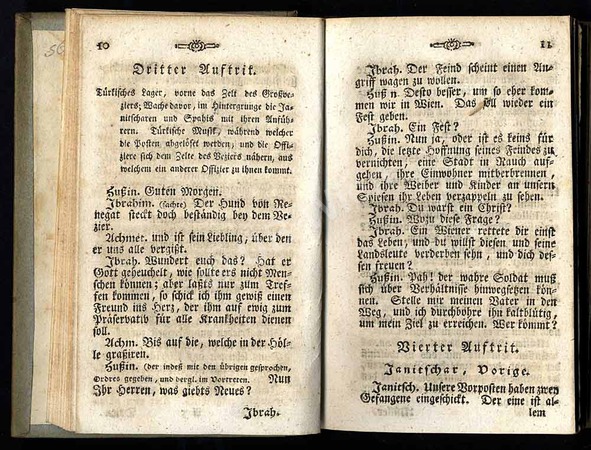 10
Dritter Auftrit.
Türkisches Lager, vorne das Zelt des Großve-
ziers; Wache davor, im Hintergrunge die Ja-
nitscharen und Spahis mit ihren Anfüh-
rern. Türkische Musik, während welcher
die Posten abgelöset werden; und die Offi-
ziere sich dem Zelte des Veziers nähern, aus
welchem ein anderer Offizier zu ihnen kommt.
Hußin. Guten Morgen.
Ibrahim. (sachte) Der Hund von Re-
negat steckt doch beständig bey dem Ve-
zier.
Achmet. und ist sein Liebling, über den
er uns alle vergißt.
Ibrah. Wundert euch das? Hat er
Gott geheuchelt, wie sollte ers nicht Men-
schen können; aber laßts nur zum Tref-
fen kommen, so schick ich ihm gewiß einen
Freund ins Herz, der ihm auf ewig zum
Präservativ für alle Krankheiten dienen
soll.
Achm. Bis auf die, welche in der Höl-
le graßiren.
Hußin. (der indeß mit den übrigen gesprochen,
Ordres gegeben, und dergl. im Vortreten. Nun
Ihr Herren, was giebts Neues?
Ibrah.
11
Ibrah. Der Feind scheint einen An-
griff wagen zu wollen.
Huß n. Desto besser, um so eher kom-
men wir in Wien. Das soll wieder ein
Fest geben.
Ibrah. Ein Fest?
Hußin. Nun ja, oder ist es keins für
dich, die letzte Hoffnung seines Feindes zu
vernichten; eine Stadt in Rauch auf-
gehen, ihre Einwohner mitverbrennen,
und ihre Weiber und Kinder an unsern
Spiesen ihr Leben verzappeln zu sehen.
Ibrah. Du warst ein Christ?
Hußin. Wozu diese Frage?
Ibrah. Ein Wiener rettete dir einst
das Leben, und du willst diesen und seine
Landsleute verderben sehn, und dich des-
sen freuen?
Hußin. Pah! der wahre Soldat muß
sich über Verhältnisse hinwegsetzen kön-
nen. Stelle mir meinen Vater in den
Weg, und ich durchbohre ihn kaltblütig,
um mein Ziel zu erreichen. Wer kommt?
Vierter Auftrit.
Janitschar, Vorige.
Janitsch. Unsere Vorposten haben zwey
Gefangene eingeschickt. Der eine ist al-
lem